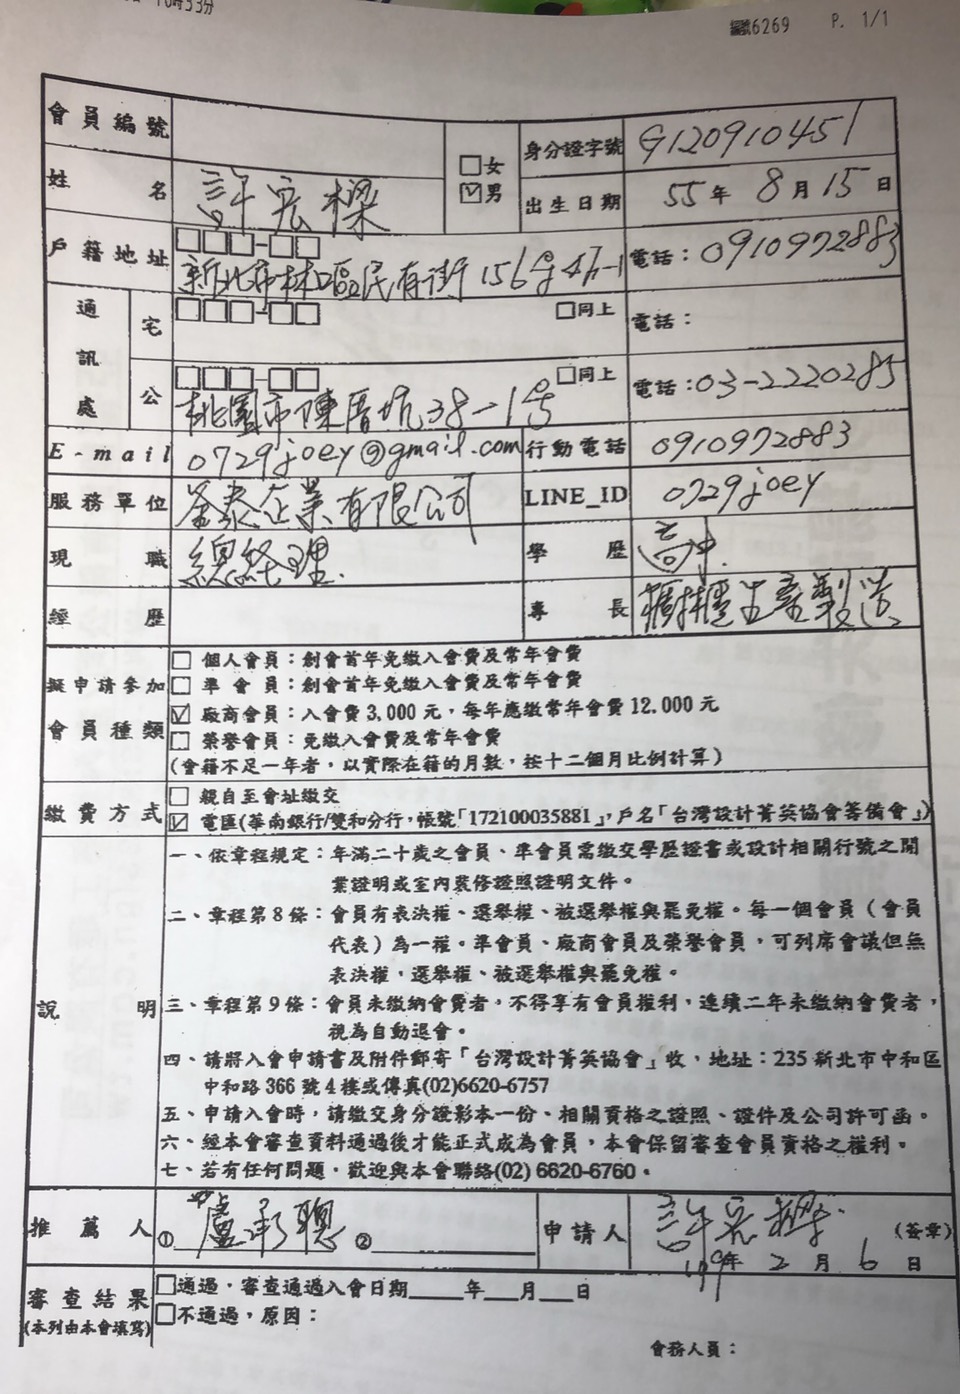 6269 P. 1/1
會員編號
身分證字號 G120910451
姓名 許宏樑 □女 ☑男
出生日期 55年 8月 15日
戶籍地址 □□□-□□
新北市林口區民有街156號4F-1 電話：0910972883
通訊處 宅 □□□-□□ □同上 電話：
公 □□□-□□ □同上 電話：03-2220285
桃園市陳厝坑38-1號
E-mail 0729joey@gmail.com 行動電話 0910972883
服務單位 企業有限公司 LINE_ID 0729joey
現職 總經理 學歷 高中
經歷 專長 製造
擬申請參加會員種類
□ 個人會員：創會首年免繳入會費及常年會費
□ 準會員：創會首年免繳入會費及常年會費
☑ 廠商會員：入會費3,000元，每年應繳常年會費12.000元
□ 榮譽會員：免繳入會費及常年會費
（會籍不足一年者，以實際在籍的月數，按十二個月比例計算）
繳費方式
□ 親自至會址繳交
☑ 電匯(華南銀行/雙和分行，帳號「172100035881」，戶名「台灣設計菁英協會籌備會」)
說明
一、依章程規定：年滿二十歲之會員、準會員需繳交學歷證書或設計相關行號之開
業證明或室內裝修證照證明文件。
二、章程第8條：會員有表決權、選舉權、被選舉權與罷免權。每一個會員（會員
代表）為一權。準會員、廠商會員及榮譽會員，可列席會議但無
表決權，選舉權、被選舉權與罷免權。
三、章程第9條：會員未繳納會費者，不得享有會員權利，連續二年未繳納會費者，
視為自動退會。
四、請將入會申請書及附件郵寄「台灣設計菁英協會」收，地址：235新北市中和區
中和路366號4樓或傳真(02)6620-6757
五、申請入會時，請繳交身分證影本一份、相關資格之證照、證件及公司許可函。
六、經本會審查資料通過後才能正式成為會員，本會保留審查會員資格之權利。
七、若有任何問題，歡迎與本會聯絡(02) 6620-6760。
推薦人 ①盧承聰 ② 申請人 許宏樑 (簽章)
109年 2月 6日
審查結果
(本列由本會填寫)
□通過，審查通過入會日期____年___月___日
□不通過，原因：
會務人員：